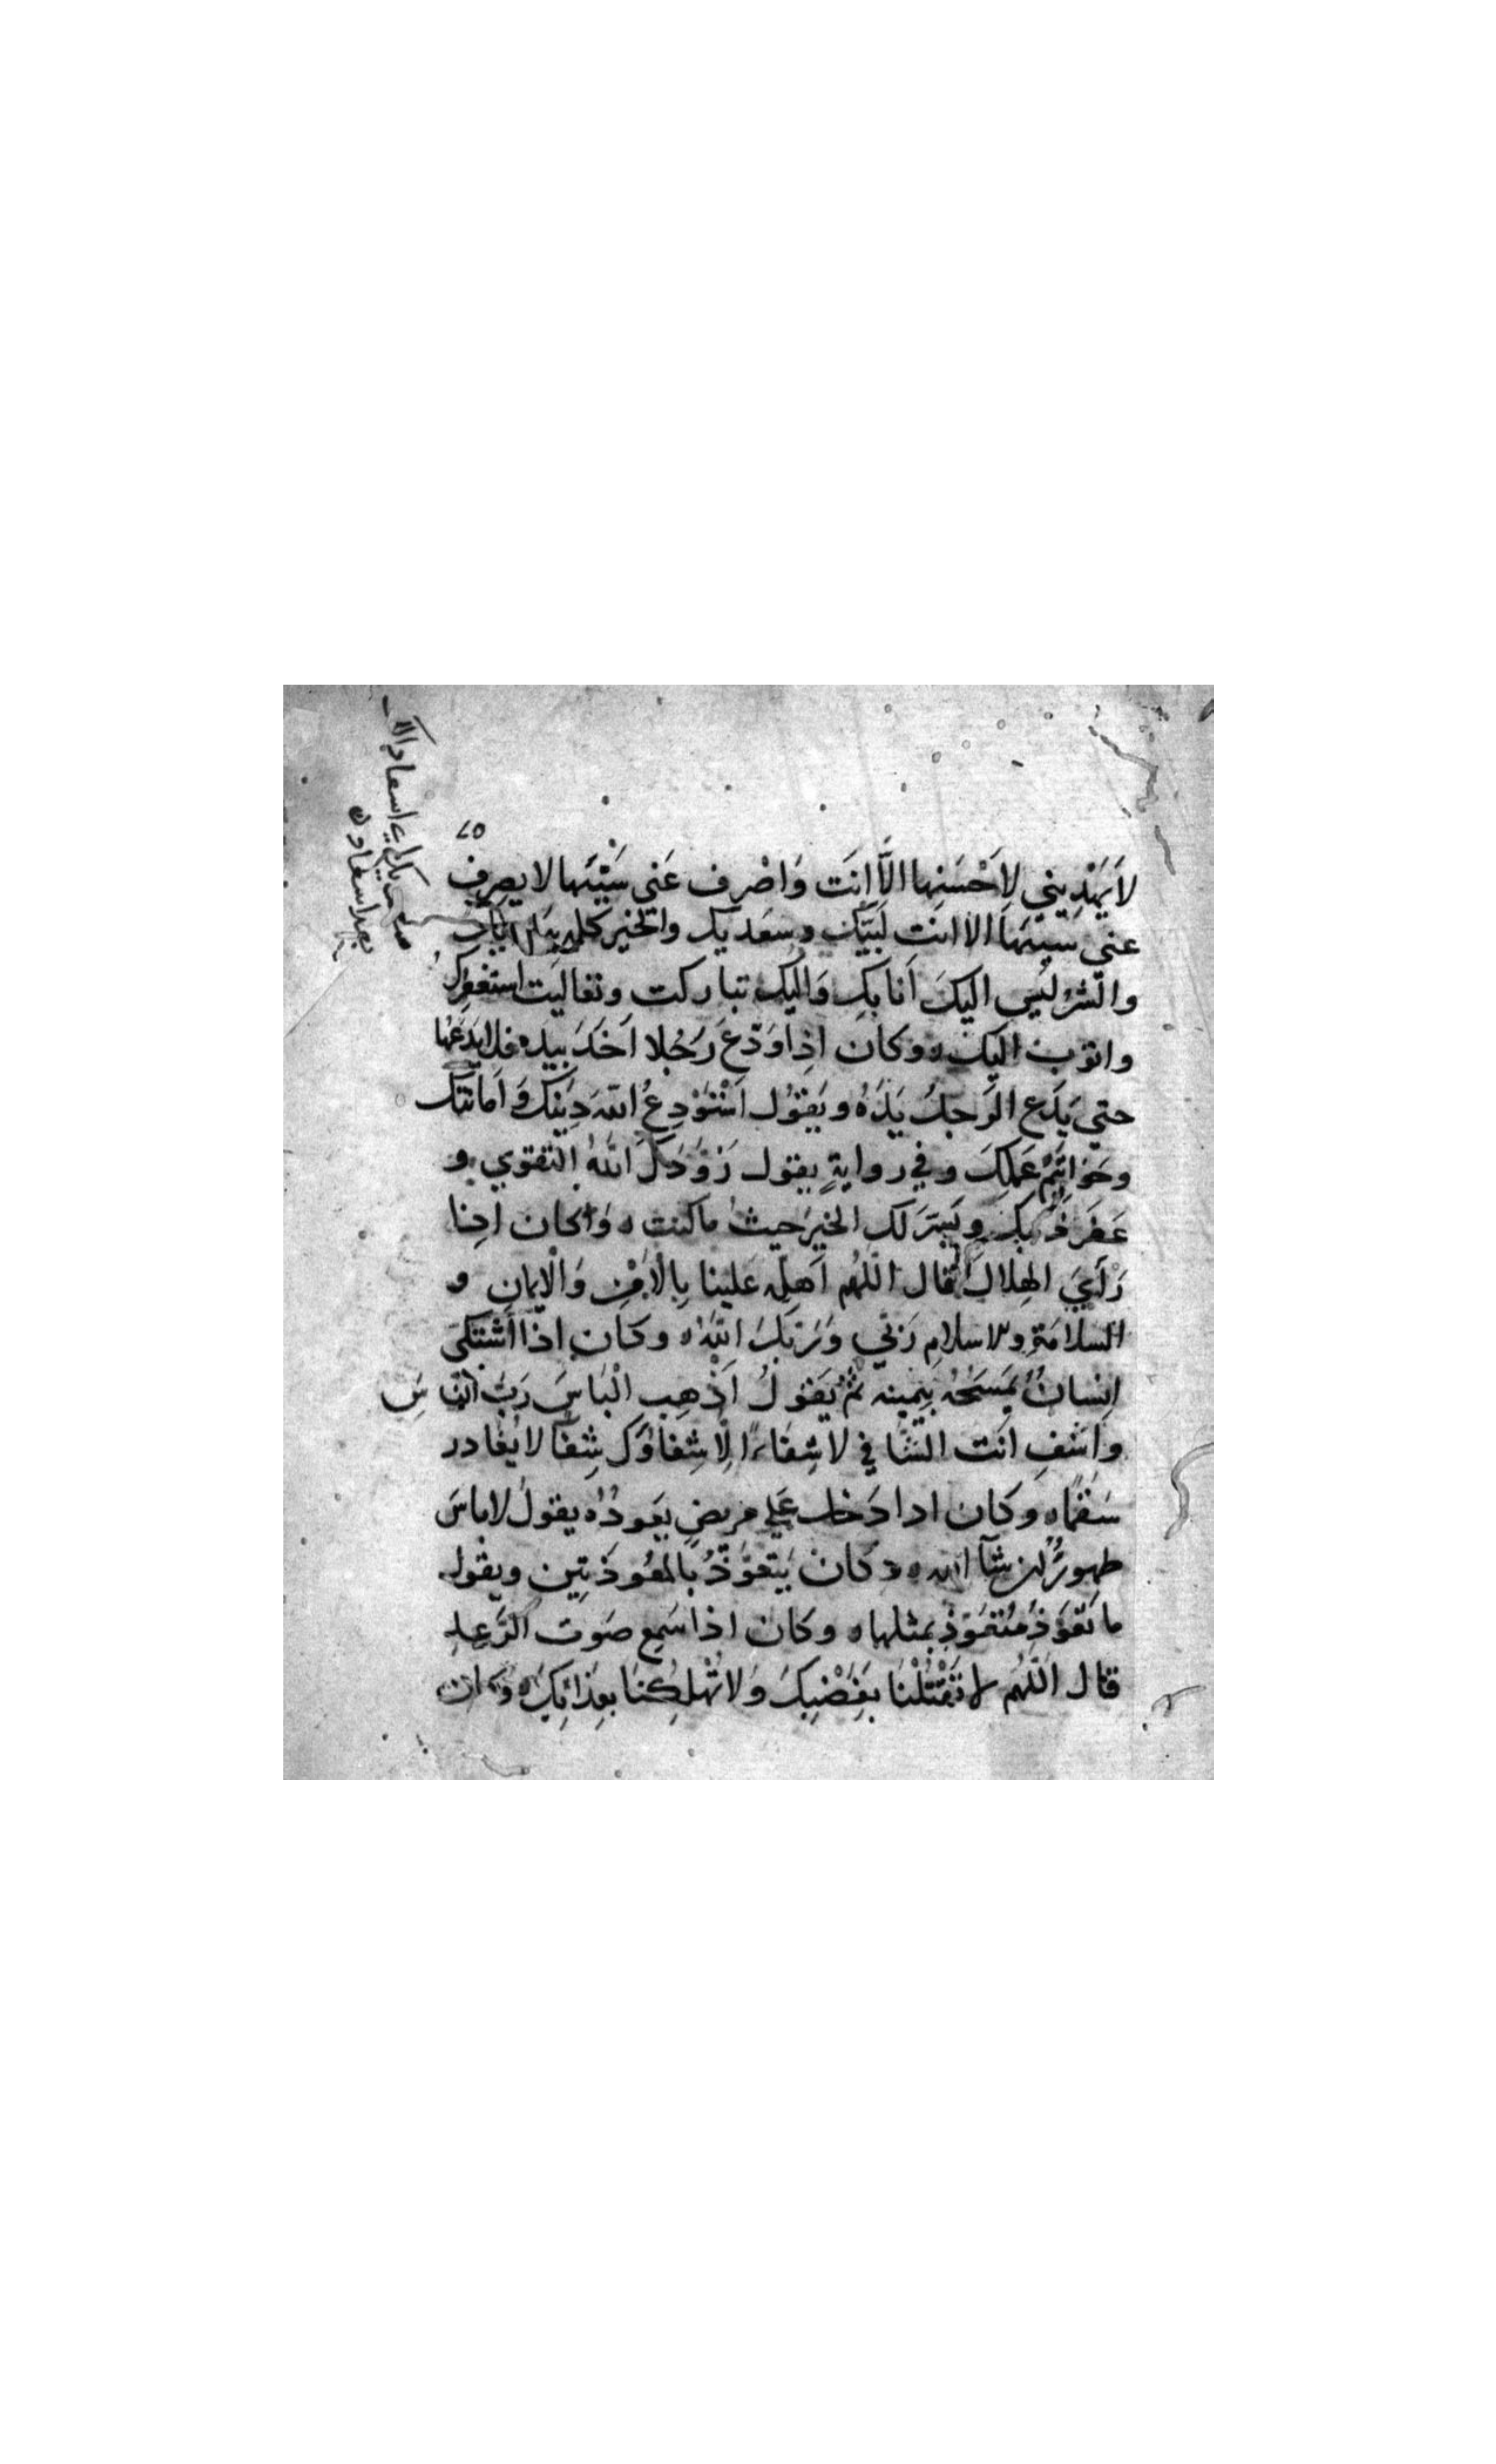 ٦٥
لَا يَهْدِيني لِاَحْسَنِها الّا اَنتَ وَاصْرِف عَنى سَيِّئَها لا يصرِف
عنى سيئَهَا الا انت لَبَيّك وسعَديك والخير كله بيديك
والشرُ ليس اليكَ اَنا بِكِ وَاليك تباركت وتعاليت استغفِرك
واتوب اليك ٥ وكان اذِا وَدّعَ رَجُلا اَخَذَ بيده فلا يَدَعُها
حتي يَدَع الرَجلُ يَدَهُ ويَقوُل اَسْتَوْدِعُ اللهَ دِينَك وَ اَمانتك
وخَواتِيْم عَمَلِكَ وفي روايةٍ يقول زَوَّدَكَ اللهُ التقوي و
غَفَرَ ذَنبك ويَسّرَ لك الخيرَ حيث ما كنت ٥ وَكان اذِا
رَاَيَ الهِلالَ قال اللّهُم اَهِلّه عَلينا بِالْاَمْنِ وَالْاِيمانِ و
السلامَةِ والاسلامِ رَبّي وَرَبّكَ اللهُ ٥ وكان اذا اشتكى
انسانٌ يَمسَحُهُ بيَمينه ثمُ يَقولُ اَذْهِب الْباَسَ رَبَّ النّاسَِ
واشفِ انت الشّافي لا شِفاءَ الّا شِفاؤكَ شِفاً لا يُغادر
سَقمًا ٥ وكان اذا دَخل عَلي مريضٍ يَعودُهُ يقولُ لا باسَ
طهورٌ ان شآ الله ٥ وكان يَتعَوّذُ بالمعُوذَتين ويقول
ما تَعَوّذَ مُتَعَوّذٌ بمثلها ٥ وكان اذا سَمِع صَوت الرَّعد
قال اللّهُم لا تَقْتُلْنا بغَضَبِكَ وَلا تُهْلِكنا بعذابِكَ ٥ وكان